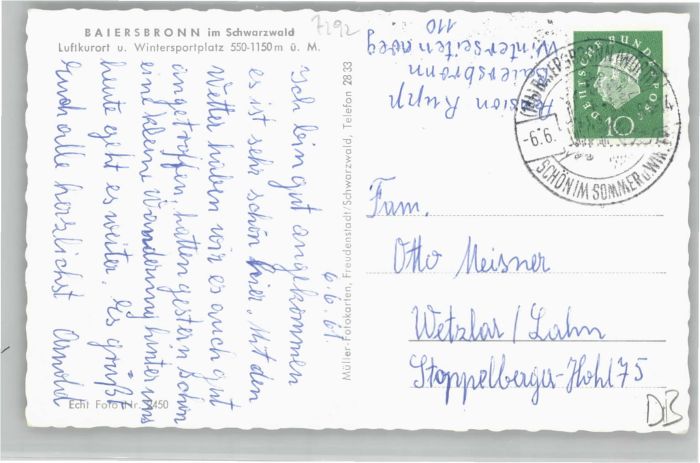 BAIERSBRONN im Schwarzwald
Luftkurort u. Wintersportplatz 550-1150 m ü. M.
7292
6.6.61
Ich bin gut angekommen
es ist sehr schön hier. Mit dem
Wetter haben wir es auch gut
angetroffen, hatten gestern schon
eine kleine Wanderung hinter uns
heute geht es weiter. Es grüßt
Euch alle herzlichst Arnold
Echt Foto Nr. 2450
Müller-Fotokarten, Freudenstadt/Schwarzwald, Telefon 28 33
Pension Rupp
Baiersbronn
Winterseitenweg
110
DEUTSCHE BUNDESPOST
10
-6.6.
SCHÖN IM SOMMER U. WINTER
Fam.
Otto Meisner
Wetzlar/Lahn
Stoppelberger-Hohl 75
DB